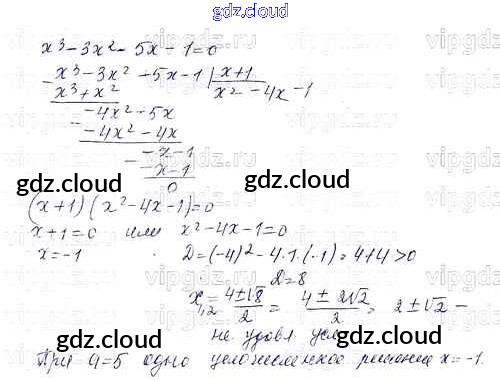 gdz.cloud
x³ - 3x² - 5x - 1 = 0
x³ - 3x² + 5x - 1 | x + 1
x³ + x² x² - 4x - 1
- 4x² - 5x
- 4x² - 4x
- x - 1
- x - 1
0
gdz.cloud gdz.cloud
(x+1)(x² - 4x - 1) = 0
x + 1 = 0 или x² - 4x - 1 = 0
x = -1 D = (-4)² - 4·1·(-1) = 4 + 4 > 0
D = 8
x₁,₂ = (4 ± √8)/2 = (4 ± 2√2)/2 = 2 ± √2 -
не удовл. усл.
gdz.cloud gdz.cloud
При a = 5 одно целочисленное решение x = -1.